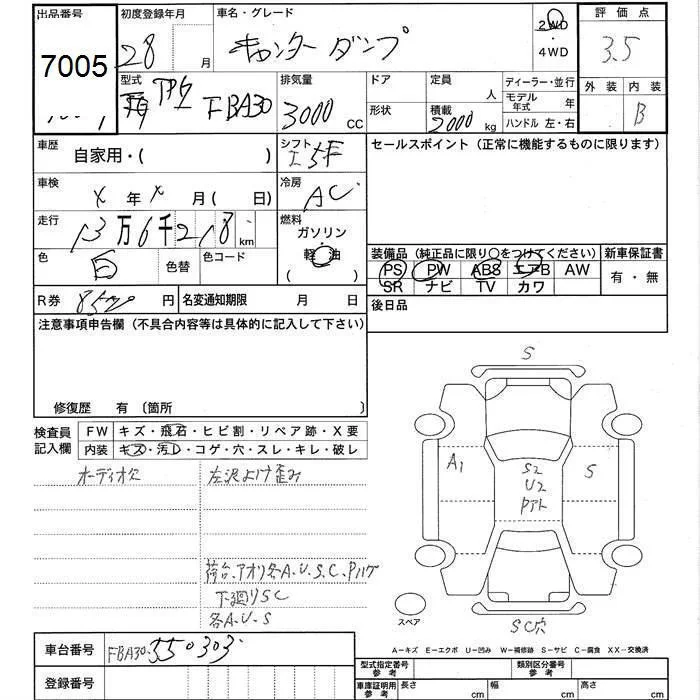 出品番号
7005
初度登録年月
28 月
車名・グレード
キャンター ダンプ
2WD
・
4WD
評価点
3.5
外装 内装
B
型式
TPG FBA30
排気量
3000 CC
ドア
形状
定員
人
積載
2000 kg
ディーラー・並行
モデル年式 年
ハンドル 左・右
車歴
自家用・( )
シフト
I 5F
車検
X 年 X 月( 日)
冷房
AC
走行
13万6千218 km
燃料
ガソリン
(軽油)
色
白
色替
色コード
R券
8520 円
名変通知期限 月 日
セールスポイント(正常に機能するものに限ります)
装備品(純正品に限り○をつけてください)
新車保証書
PS PW ABS エアB AW
SR ナビ TV カワ
有・無
後日品
注意事項申告欄(不具合内容等は具体的に記入して下さい)
修復歴 有 〔箇所 〕
検査員
記入欄
FW キズ・飛石・ヒビ割・リペア跡・X要
内装 キズ・汚レ・コゲ・穴・スレ・キレ・破レ
オーディオ欠
左泥よけ歪み
荷台、アオリ各A、U、S、C、Pハゲ
下廻りSC
各A、U、S
S
A1
S2
U2
Pアト
S
SC穴
スペア
A−キズ E−エクボ U−凹み W−補修跡 S−サビ C−腐食 XX−交換済
車台番号
FBA30-550303
登録番号
型式指定番号
参考
類別区分番号
参考
車庫証明用
参考
長さ cm
幅 cm
高さ cm